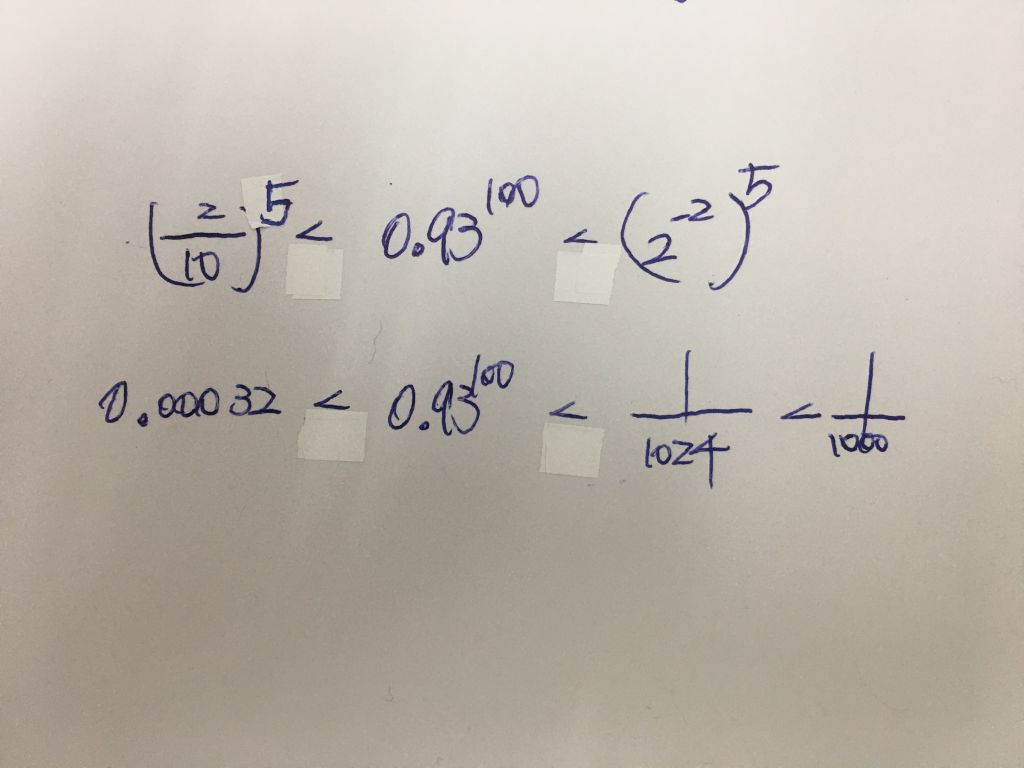 (2/10)^5 < 0.93^100 < (2^-2)^5
0.00032 < 0.93^100 < 1/1024 < 1/1000